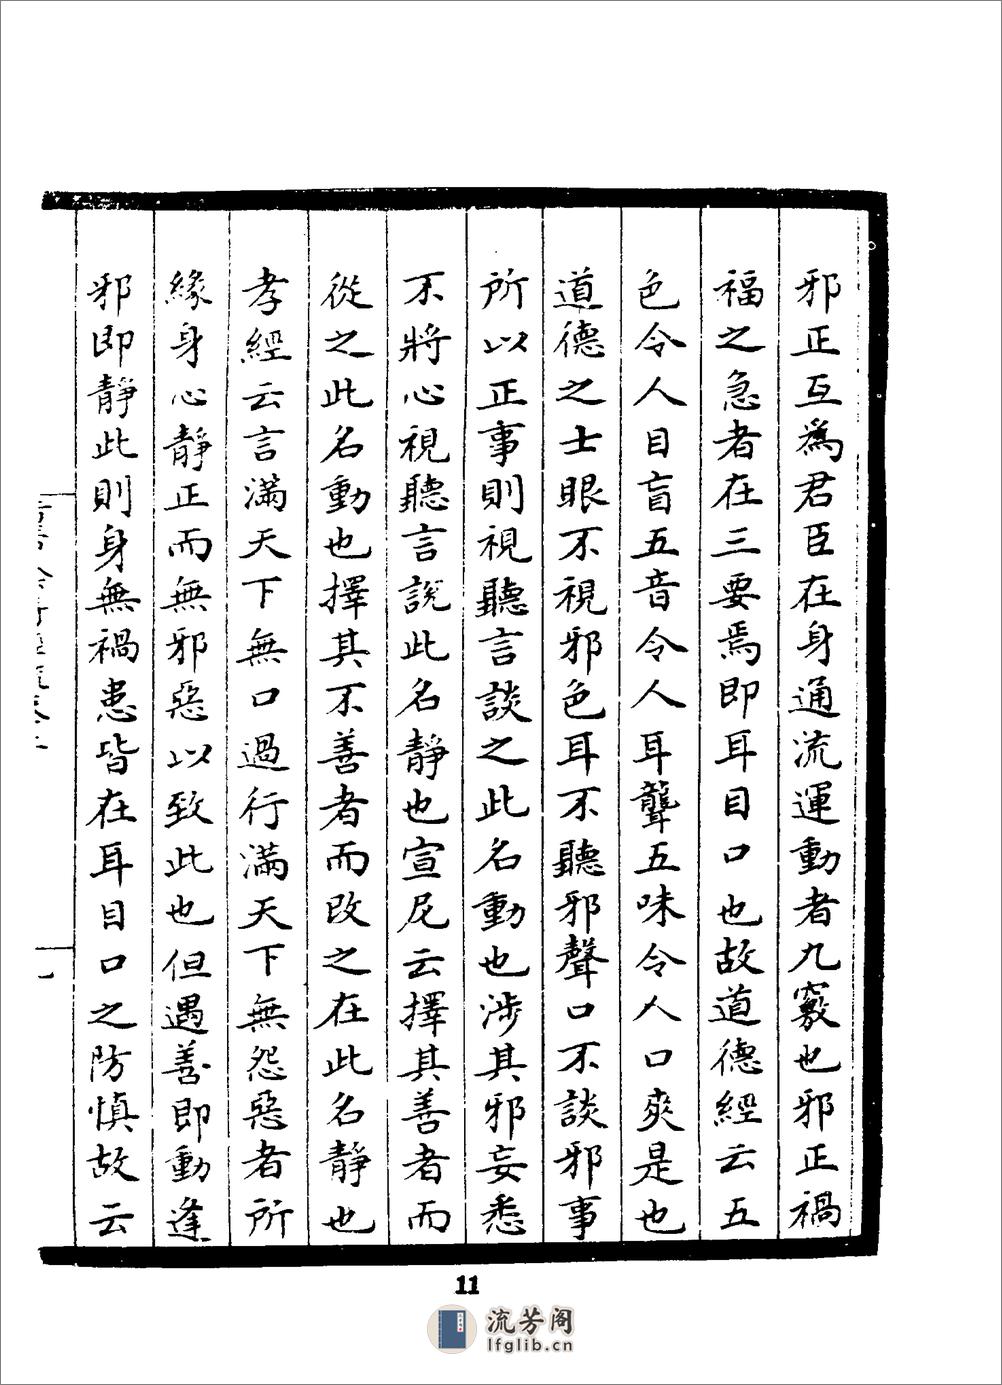 邪正互爲君臣在身通流運動者九竅也邪正禍
福之急者在三要焉即耳目口也故道德經云五
色令人目盲五音令人耳聾五味令人口爽是也
道德之士眼不視邪色耳不聽邪聲口不談邪事
所以正事則視聽言談之此名動也涉其邪妄悉
不將心視聽言說此名靜也宣尼云擇其善者而
從之此名動也擇其不善者而改之在此名靜也
孝經云言滿天下無口過行滿天下無怨惡者所
緣身心靜正而無邪惡以致此也但遇善即動逢
邪即靜此則身無禍患皆在耳目口之防慎故云
11
流芳阁
lfglib.cn